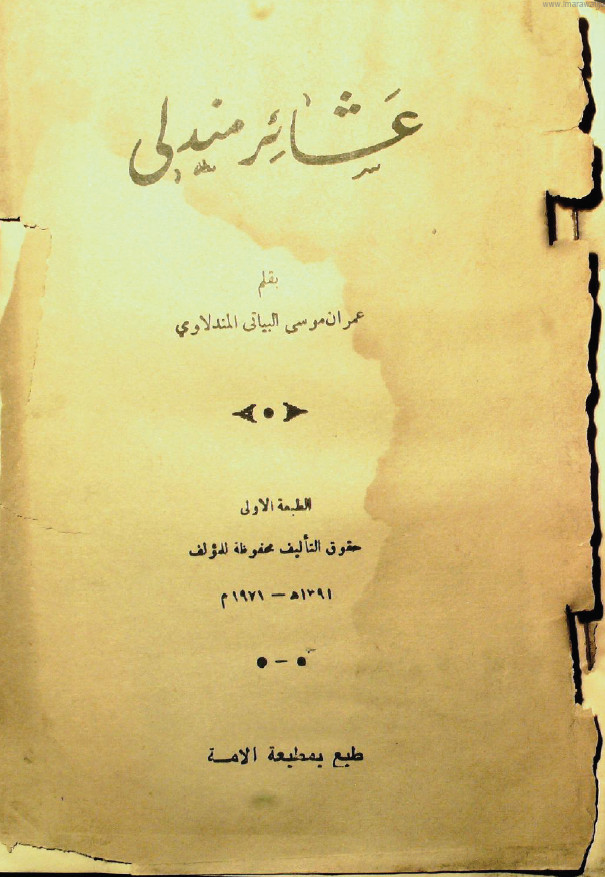 عَشَائِر مندلي
بقلم
عمران موسى البياتي المندلاوي
الطبعة الاولى
حقوق التأليف محفوظة للمؤلف
١٣٩١ھ — ١٩٧١ م
طبع بمطبعة الامـة